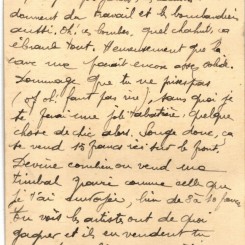 donnent du travail et le bombardier
aussi. Oh, ces bombes, quel chahut, ça
ébranle tout. Heureusement que la
cave me paraît encore assez solide.
Dommage que tu ne prises pas
(oh oh! faut pas rire), sans quoi je
te ferai une jolie tabatière, quelque
chose de chic alors. Songe donc, ça
se vend 15 francs ici sur le front.
Devine combien on vend ma
timbal gravée comme celle que
je t'ai envoyée, l'un de 8 à 10 francs
Tu vois les artistes ont de quoi
gagner et ils en vendent tu